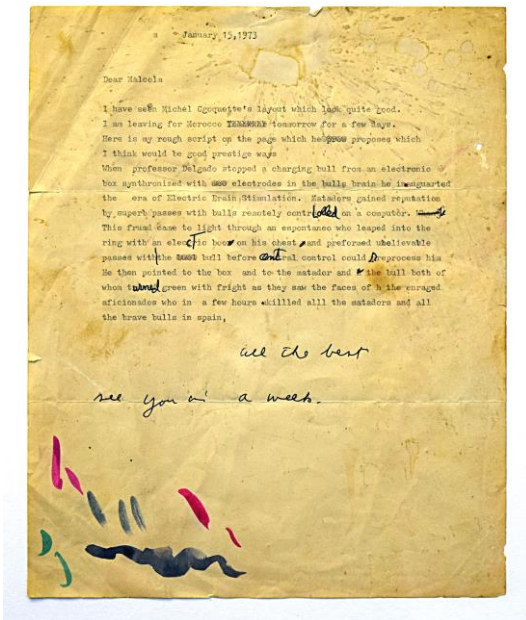 January 15,1973
Dear Malcolm
I have seen Michel Cgoquette's layout which look quite good.
I am leaving for Morocco tomorrow for a few days.
Here is my rough script on the page which he proposes which
I think would be good prestige ways
When professor Delgado stopped a charging bull from an electronic
box synthronized with electrodes in the bulls brain he inauguarted
the era of Electric Brain Stimulation. Matadors gained reputation
by superb passes with bulls remotely controlled on a computor.
This fraud came to light through an espontaneo who leaped into the
ring with an electric box on his chest and preformed unbelievable
passes with the bull before central control could reprocess him
He then pointed to the box and to the matador and the bull both of
whom turned green with fright as they saw the faces of the enraged
aficionados who in a few hours skillled alll the matadors and all
the brave bulls in spain,
all the best
see you in a week.